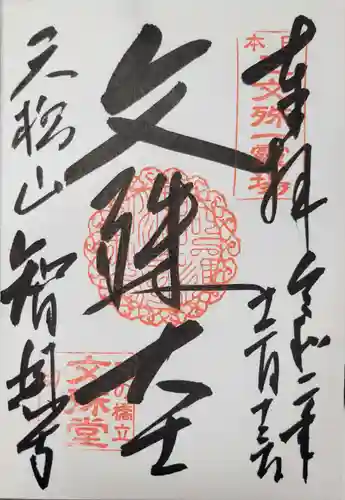 奉拝
令和二年
十一月十三日
文殊大士
天橋山智恩寺
日本三文殊一霊場
天の橋立
文殊堂